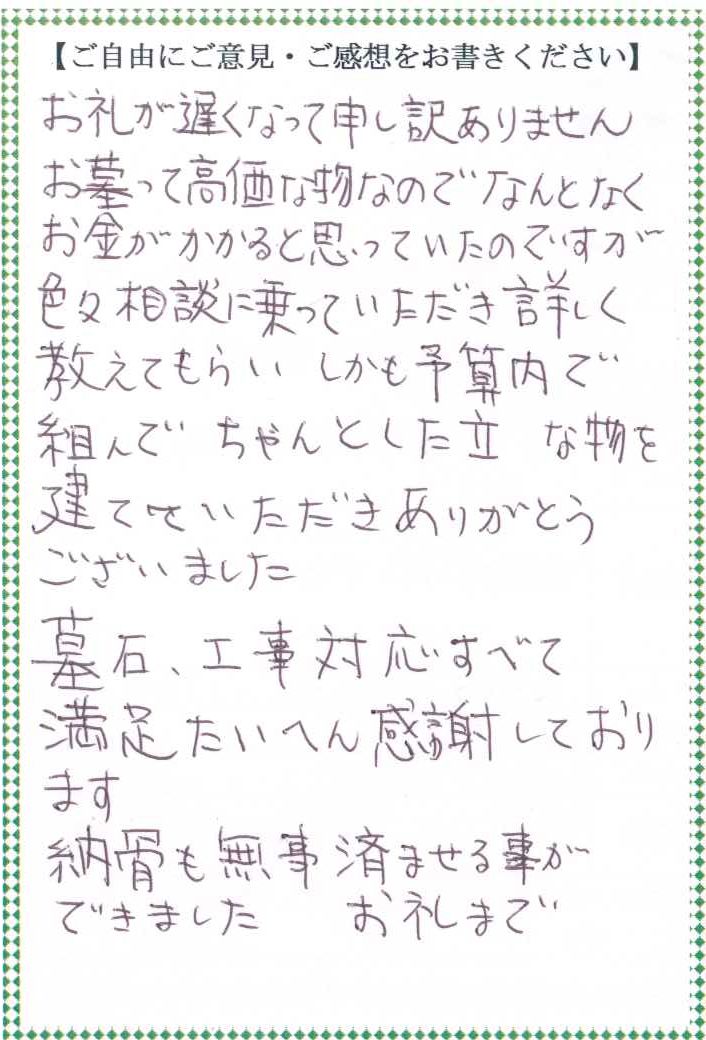 【ご自由にご意見・ご感想をお書きください】
お礼が遅くなって申し訳ありません
お墓って高価な物なのでなんとなく
お金がかかると思っていたのですが
色々相談に乗っていただき詳しく
教えてもらい しかも予算内で
組んで ちゃんとした立 な物を
建てせいただきありがとう
ございました
墓石、工事対応すべて
満足たいへん感謝しており
ます
納骨も無事済ませる事が
できました お礼まで